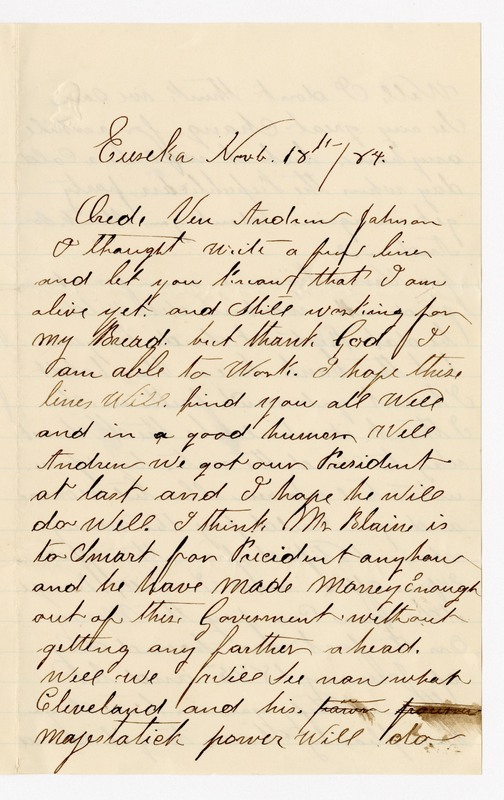 Eureka Novb. 18th/84.
Örede Ven Andrew Jahnson
I thaught write a few lines
and let you Know that I am
alive yet. and Still working for
my Bread. but thank God I
am able to Work. I hope this
lines Will. find you all Well
and in a good humor Well
Andrew We got our President
at last and I hope he Will
do Well. I think Mr Blaine is
to Smart for Precident anyhow
and he have made Money Enough
out of this Goverment without
getting any farther ahead.
Well We Will See now what
Cleveland and his
Majestatick power Will do